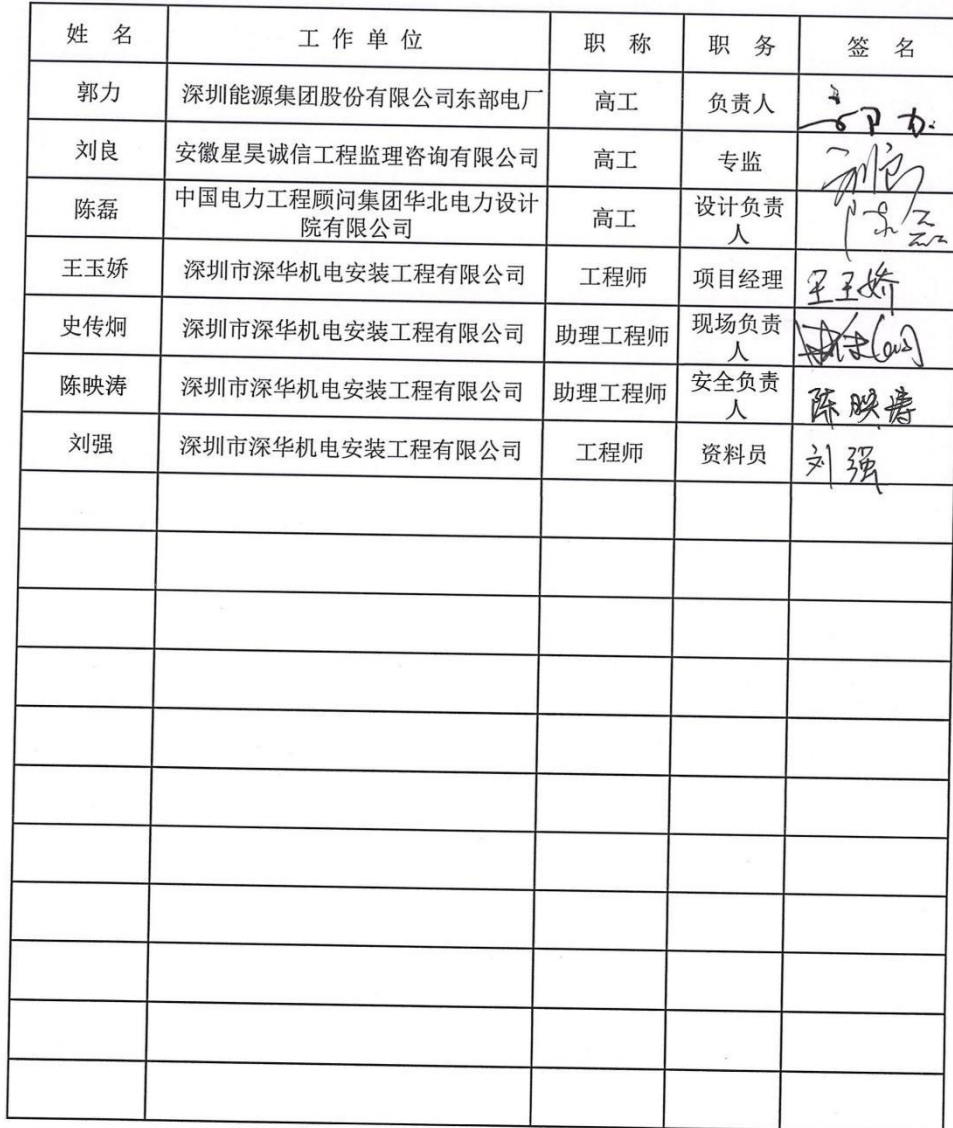 姓 名 工 作 单 位 职 称 职 务 签 名
郭力 深圳能源集团股份有限公司东部电厂 高工 负责人 郭力
刘良 安徽星昊诚信工程监理咨询有限公司 高工 专监 刘良
陈磊 中国电力工程顾问集团华北电力设计 高工 设计负责 陈磊
院有限公司 人
王玉娇 深圳市深华机电安装工程有限公司 工程师 项目经理 王玉娇
史传炯 深圳市深华机电安装工程有限公司 助理工程师 现场负责
人
陈映涛 深圳市深华机电安装工程有限公司 助理工程师 安全负责 陈映涛
人
刘强 深圳市深华机电安装工程有限公司 工程师 资料员 刘强